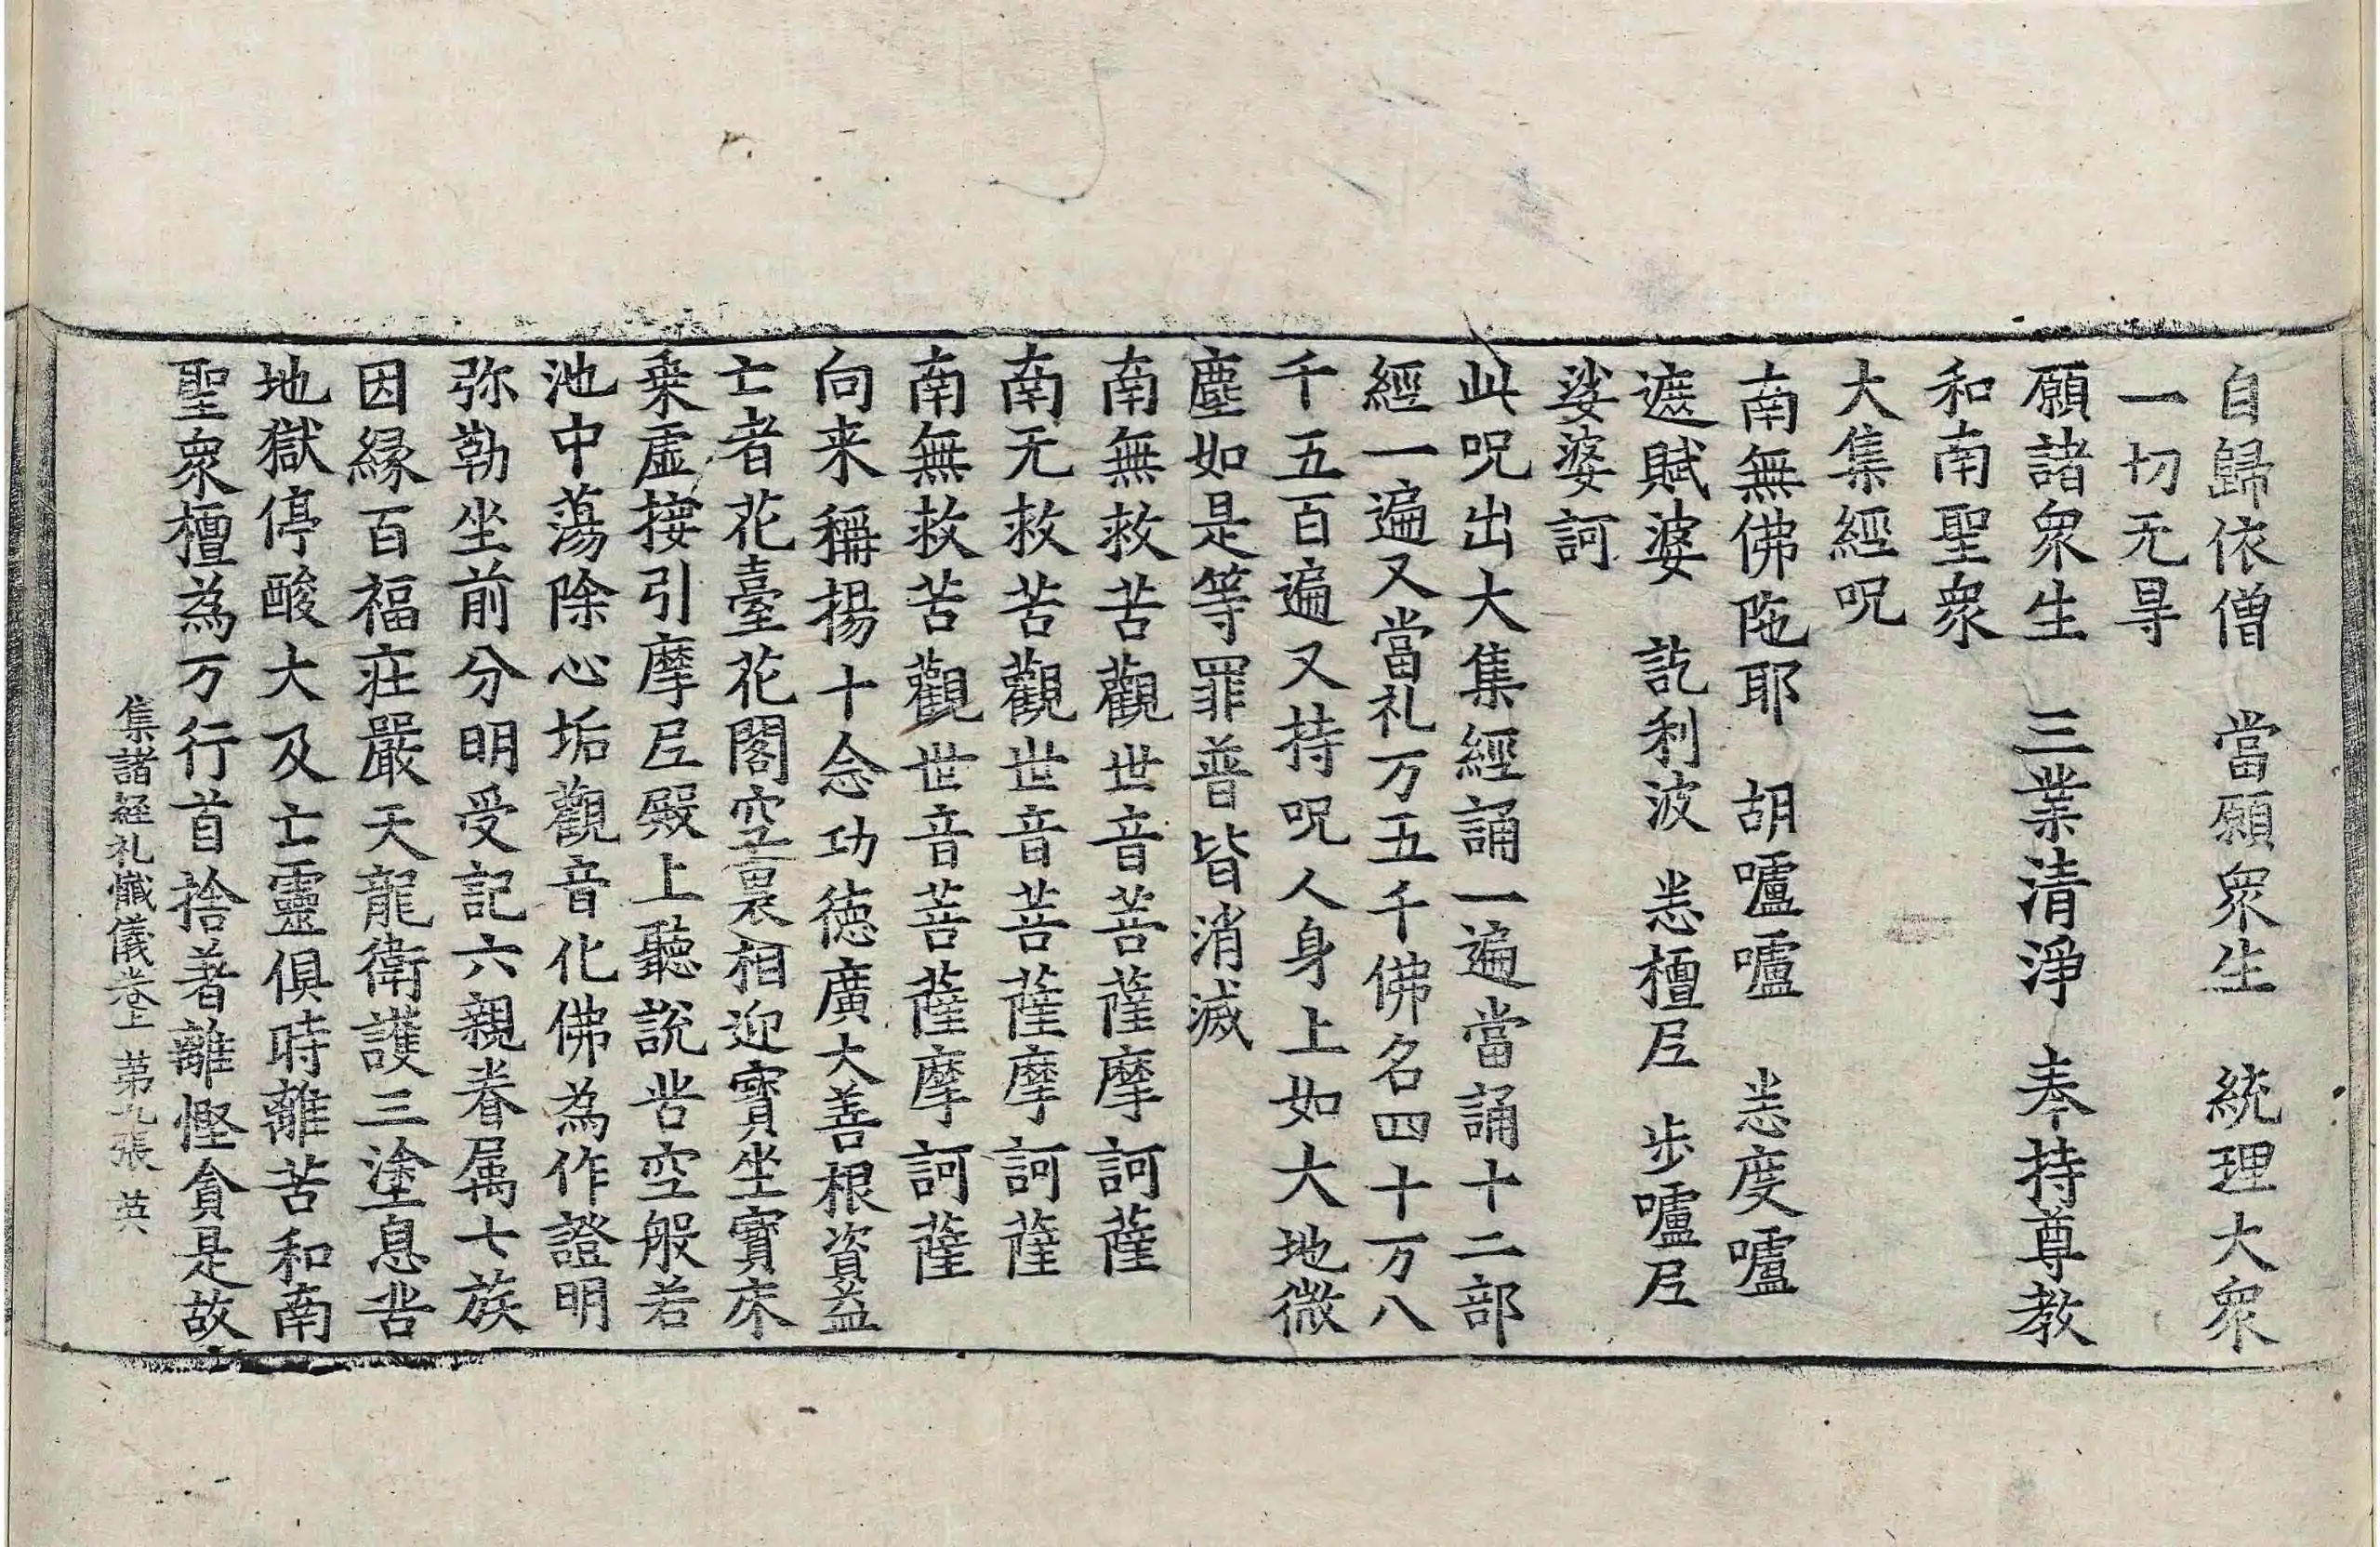 自歸依僧　當願衆生　統理大衆
一切无㝵
願諸衆生　三業清淨　奉持尊教
和南聖衆
大集經呪
南無佛陁耶　胡嚧嚧　悉度嚧
遮賦婆　訖利波　悉檀𡰱　步嚧𡰱
娑婆訶
此呪出大集經誦一遍當誦十二部
經一遍又當礼万五千佛名四十万八
千五百遍又持呪人身上如大地微
塵如是等罪普皆消滅
南無救苦觀世音菩薩摩訶薩
南无救苦觀世音菩薩摩訶薩
南無救苦觀世音菩薩摩訶薩
向来稱揚十念功德廣大善根資益
亡者花臺花閣空裏相迎寳坐寳床
乗虛接引摩𡰱殿上聽說苦空般若
池中蕩除心垢觀音化佛為作證明
弥勒坐前分明受記六親眷属七族
因緣百福莊嚴天龍衛護三塗息苦
地獄停酸大及亡靈俱時離苦和南
聖衆檀為万行首捨著離慳貪是故
集諸經礼懺儀卷上　苐九張　英